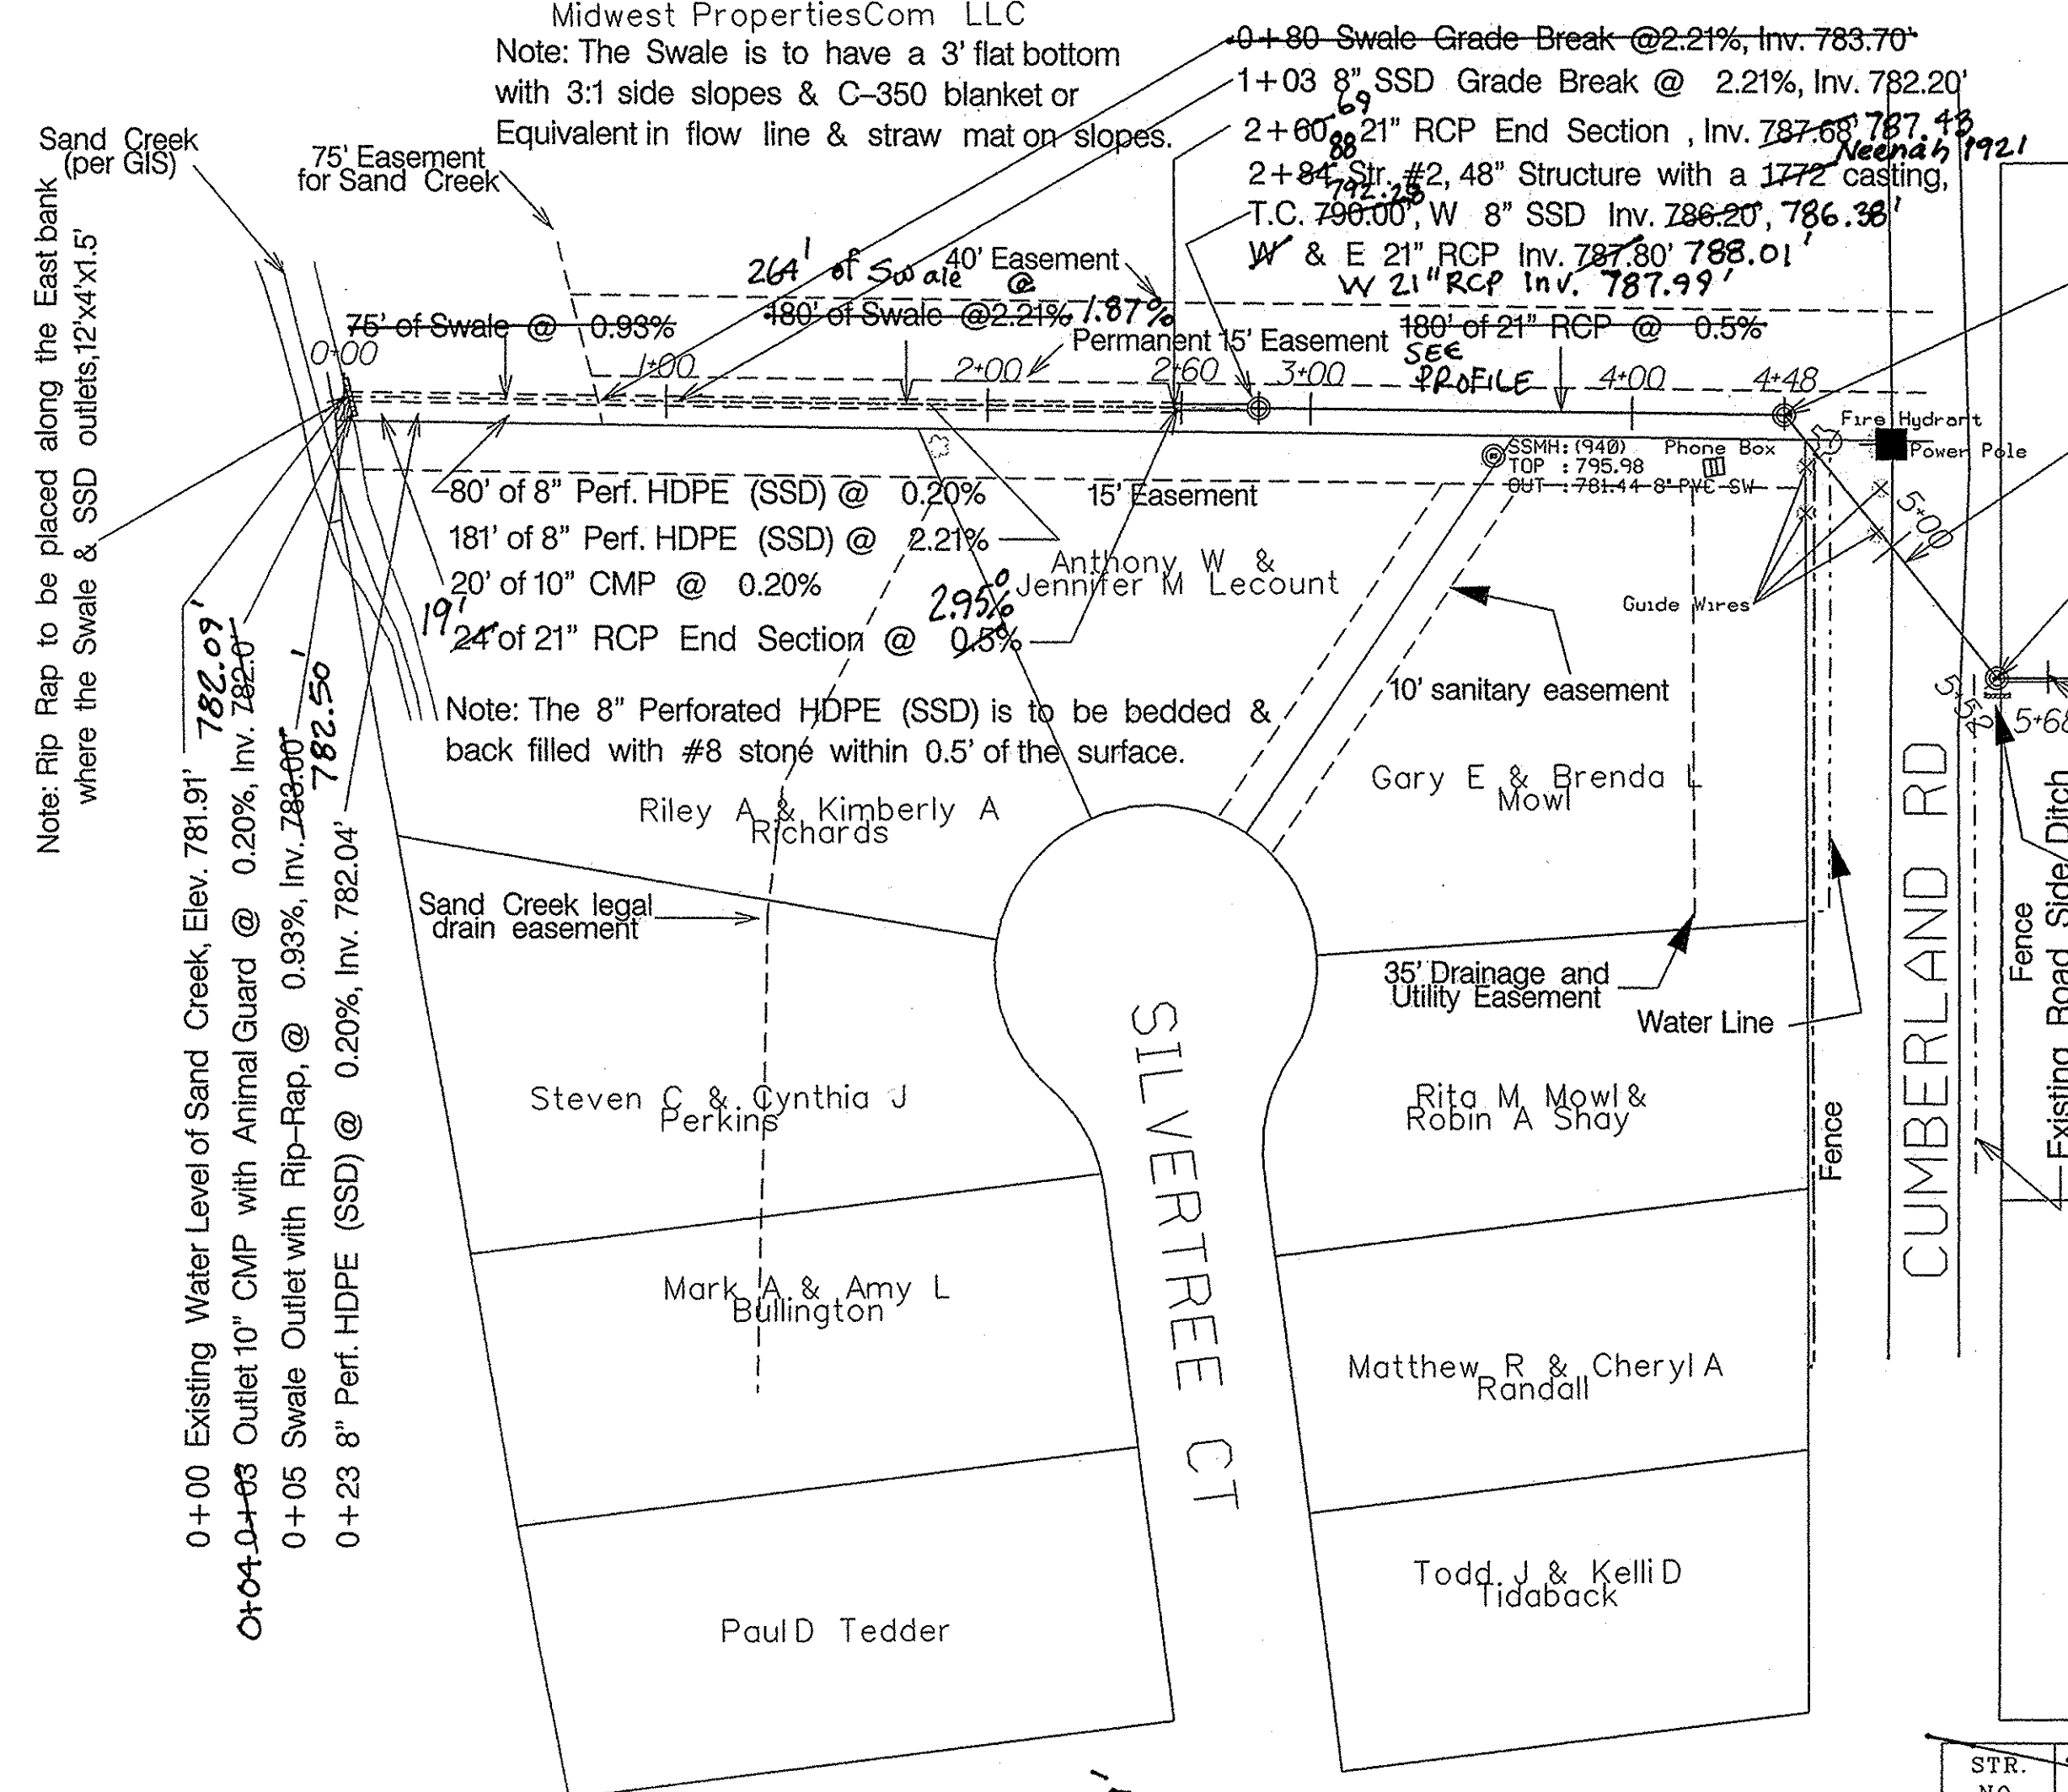 Midwest PropertiesCom LLC
Note: The Swale is to have a 3' flat bottom
with 3:1 side slopes & C-350 blanket or
Equivalent in flow line & straw mat on slopes.
0+80 Swale Grade Break @2.21%, Inv. 783.70'
1+03 8" SSD Grade Break @ 2.21%, Inv. 782.20'
69
2+60, 21" RCP End Section , Inv. 787.68' 787.43
88 Neenah 1921
2+84 Str. #2, 48" Structure with a 1772 casting,
792.28
T.C. 790.00', W 8" SSD Inv. 786.20', 786.38'
W & E 21" RCP Inv. 787.80' 788.01'
W 21" RCP Inv. 787.99'
Sand Creek
(per GIS)
75' Easement
for Sand Creek
Note: Rip Rap to be placed along the East bank
where the Swale & SSD outlets,12'x4'x1.5'
264' of Swale @
40' Easement
75' of Swale @ 0.93%
180' of Swale @2.21% 1.87%
180' of 21" RCP @ 0.5%
Permanent 15' Easement
SEE
PROFILE
0+00
1+00
2+00
2+60
3+00
4+00
4+48
Fire Hydrant
Power Pole
SSMH: (940)
TOP : 795.98
OUT : 781.44 8" PVC SW
Phone Box
5+00
80' of 8" Perf. HDPE (SSD) @ 0.20%
15' Easement
181' of 8" Perf. HDPE (SSD) @ 2.21%
20' of 10" CMP @ 0.20%
19' 2.95%
24' of 21" RCP End Section @ 0.5%
Anthony W &
Jennifer M Lecount
Guide Wires
10' sanitary easement
Note: The 8" Perforated HDPE (SSD) is to be bedded &
back filled with #8 stone within 0.5' of the surface.
5+52
5+68
Riley A & Kimberly A
Richards
Gary E & Brenda L
Mowl
0+00 Existing Water Level of Sand Creek, Elev. 781.91' 782.09'
0+04 0+03 Outlet 10" CMP with Animal Guard @ 0.20%, Inv. 782.0'
0+05 Swale Outlet with Rip-Rap, @ 0.93%, Inv. 783.00' 782.50'
0+23 8" Perf. HDPE (SSD) @ 0.20%, Inv. 782.04'
Sand Creek legal
drain easement
35' Drainage and
Utility Easement
Water Line
CUMBERLAND RD
Fence
Existing Road Side Ditch
Fence
SILVERTREE CT
Steven C & Cynthia J
Perkins
Rita M Mowl &
Robin A Shay
Mark A & Amy L
Bullington
Matthew R & Cheryl A
Randall
Paul D Tedder
Todd J & Kelli D
Tidaback
STR.
NO